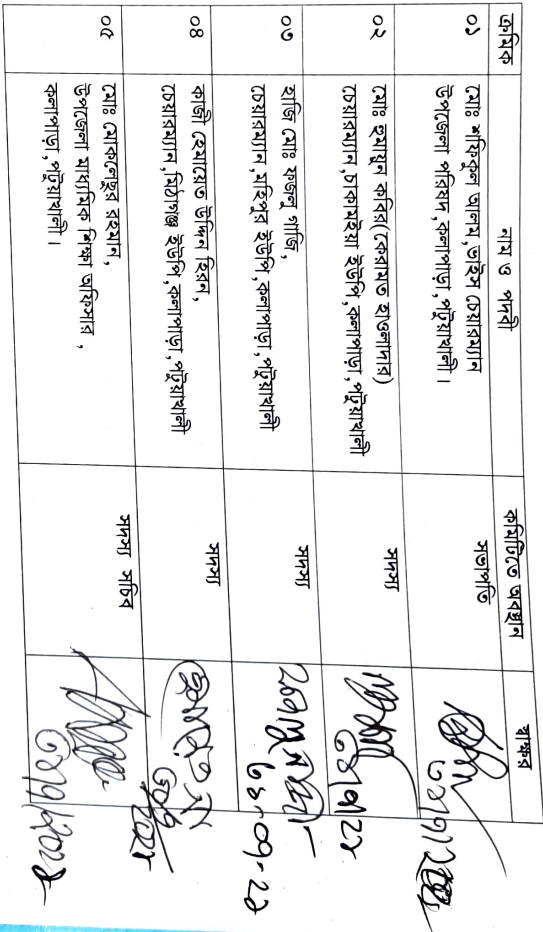 ক্রমিক
নাম ও পদবী
কমিটিতে অবস্থান
স্বাক্ষর
০১
মোঃ শফিকুল আলম,ভাইস চেয়ারম্যান
উপজেলা পরিষদ,কলাপাড়া,পটুয়াখালী।
সভাপতি
০২
মোঃ হুমায়ুন কবির(কেরামত হাওলাদার)
চেয়ারম্যান,চাকামইয়া ইউপি,কলাপাড়া,পটুয়াখালী
সদস্য
০৩
হাজি মোঃ ফজলু গাজি,
চেয়ারম্যান,মহিপুর ইউপি,কলাপাড়া,পটুয়াখালী
সদস্য
০৪
কাজী হেমায়েত উদ্দিন হিরন,
চেয়ারম্যান,মিঠাগঞ্জ ইউপি,কলাপাড়া,পটুয়াখালী
সদস্য
০৫
মোঃ মোকলেছুর রহমান,
উপজেলা মাধ্যমিক শিক্ষা অফিসার,
কলাপাড়া,পটুয়াখালী।
সদস্য সচিব